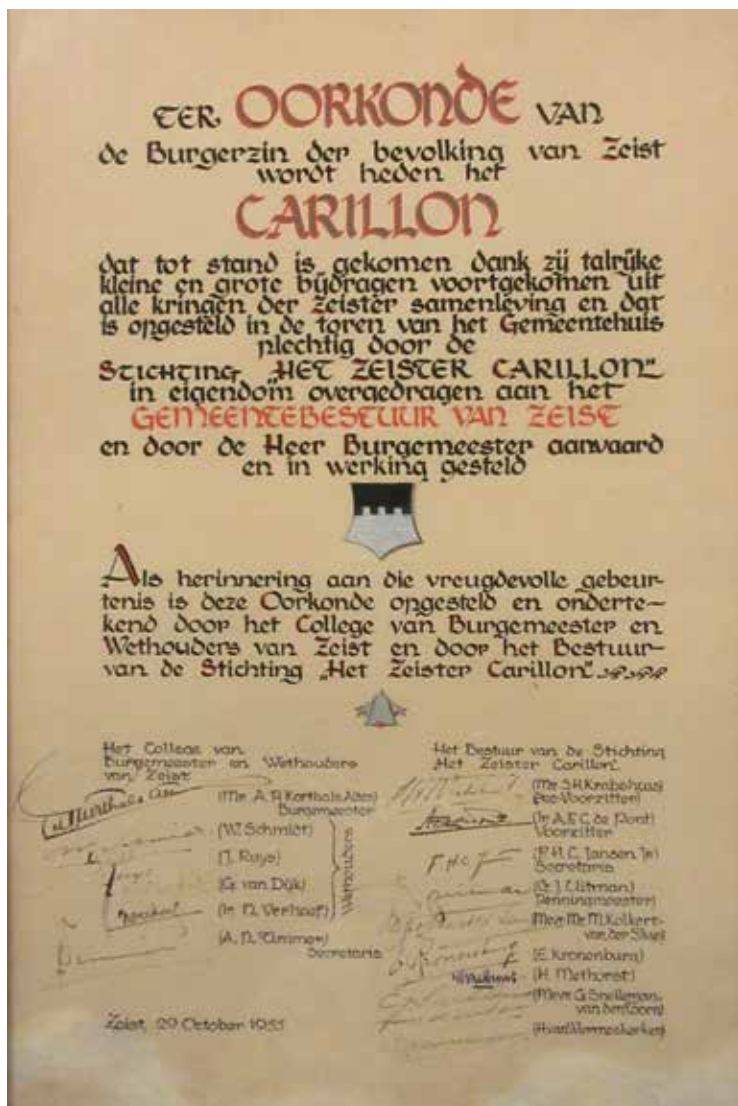 TER OORKONDE VAN
de Burgerzin der bevolking van Zeist
wordt heden het
CARILLON
dat tot stand is gekomen dank zij talrijke
kleine en grote bijdragen voortgekomen uit
alle kringen der Zeister samenleving en dat
is opgesteld in de toren van het Gemeentehuis
plechtig door de
STICHTING „HET ZEISTER CARILLON"
in eigendom overgedragen aan het
GEMEENTEBESTUUR VAN ZEIST
en door de Heer Burgemeester aanvaard
en in werking gesteld
Als herinnering aan die vreugdevolle gebeur-
tenis is deze Oorkonde opgesteld en onderte-
kend door het College van Burgemeester en
Wethouders van Zeist en door het Bestuur
van de Stichting „Het Zeister Carillon".
Het College van
Burgemeester en Wethouders
van Zeist
(Mr. A. P. Korthals Altes)
Burgemeester
(W. Schmidt)
(J. Ruys)
(G. van Dijk)
(Ir. N. Verhoef)
Wethouders
Secretaris
Zeist, 29 October 1955
Het Bestuur van de Stichting
„Het Zeister Carillon".
(Mr. S.H.
Voorzitter)
(Ir. A.F.C. de
Voorzitter
(F.H.C. Jansen Jr.)
Secretaris
(G. J. Uitman)
Penningmeester)
(Mevr. Mr. M. Kolkert-
van der Sluis)
(E. Kronenburg)
(H. Methorst)
(Mevr. G. Snelleman-